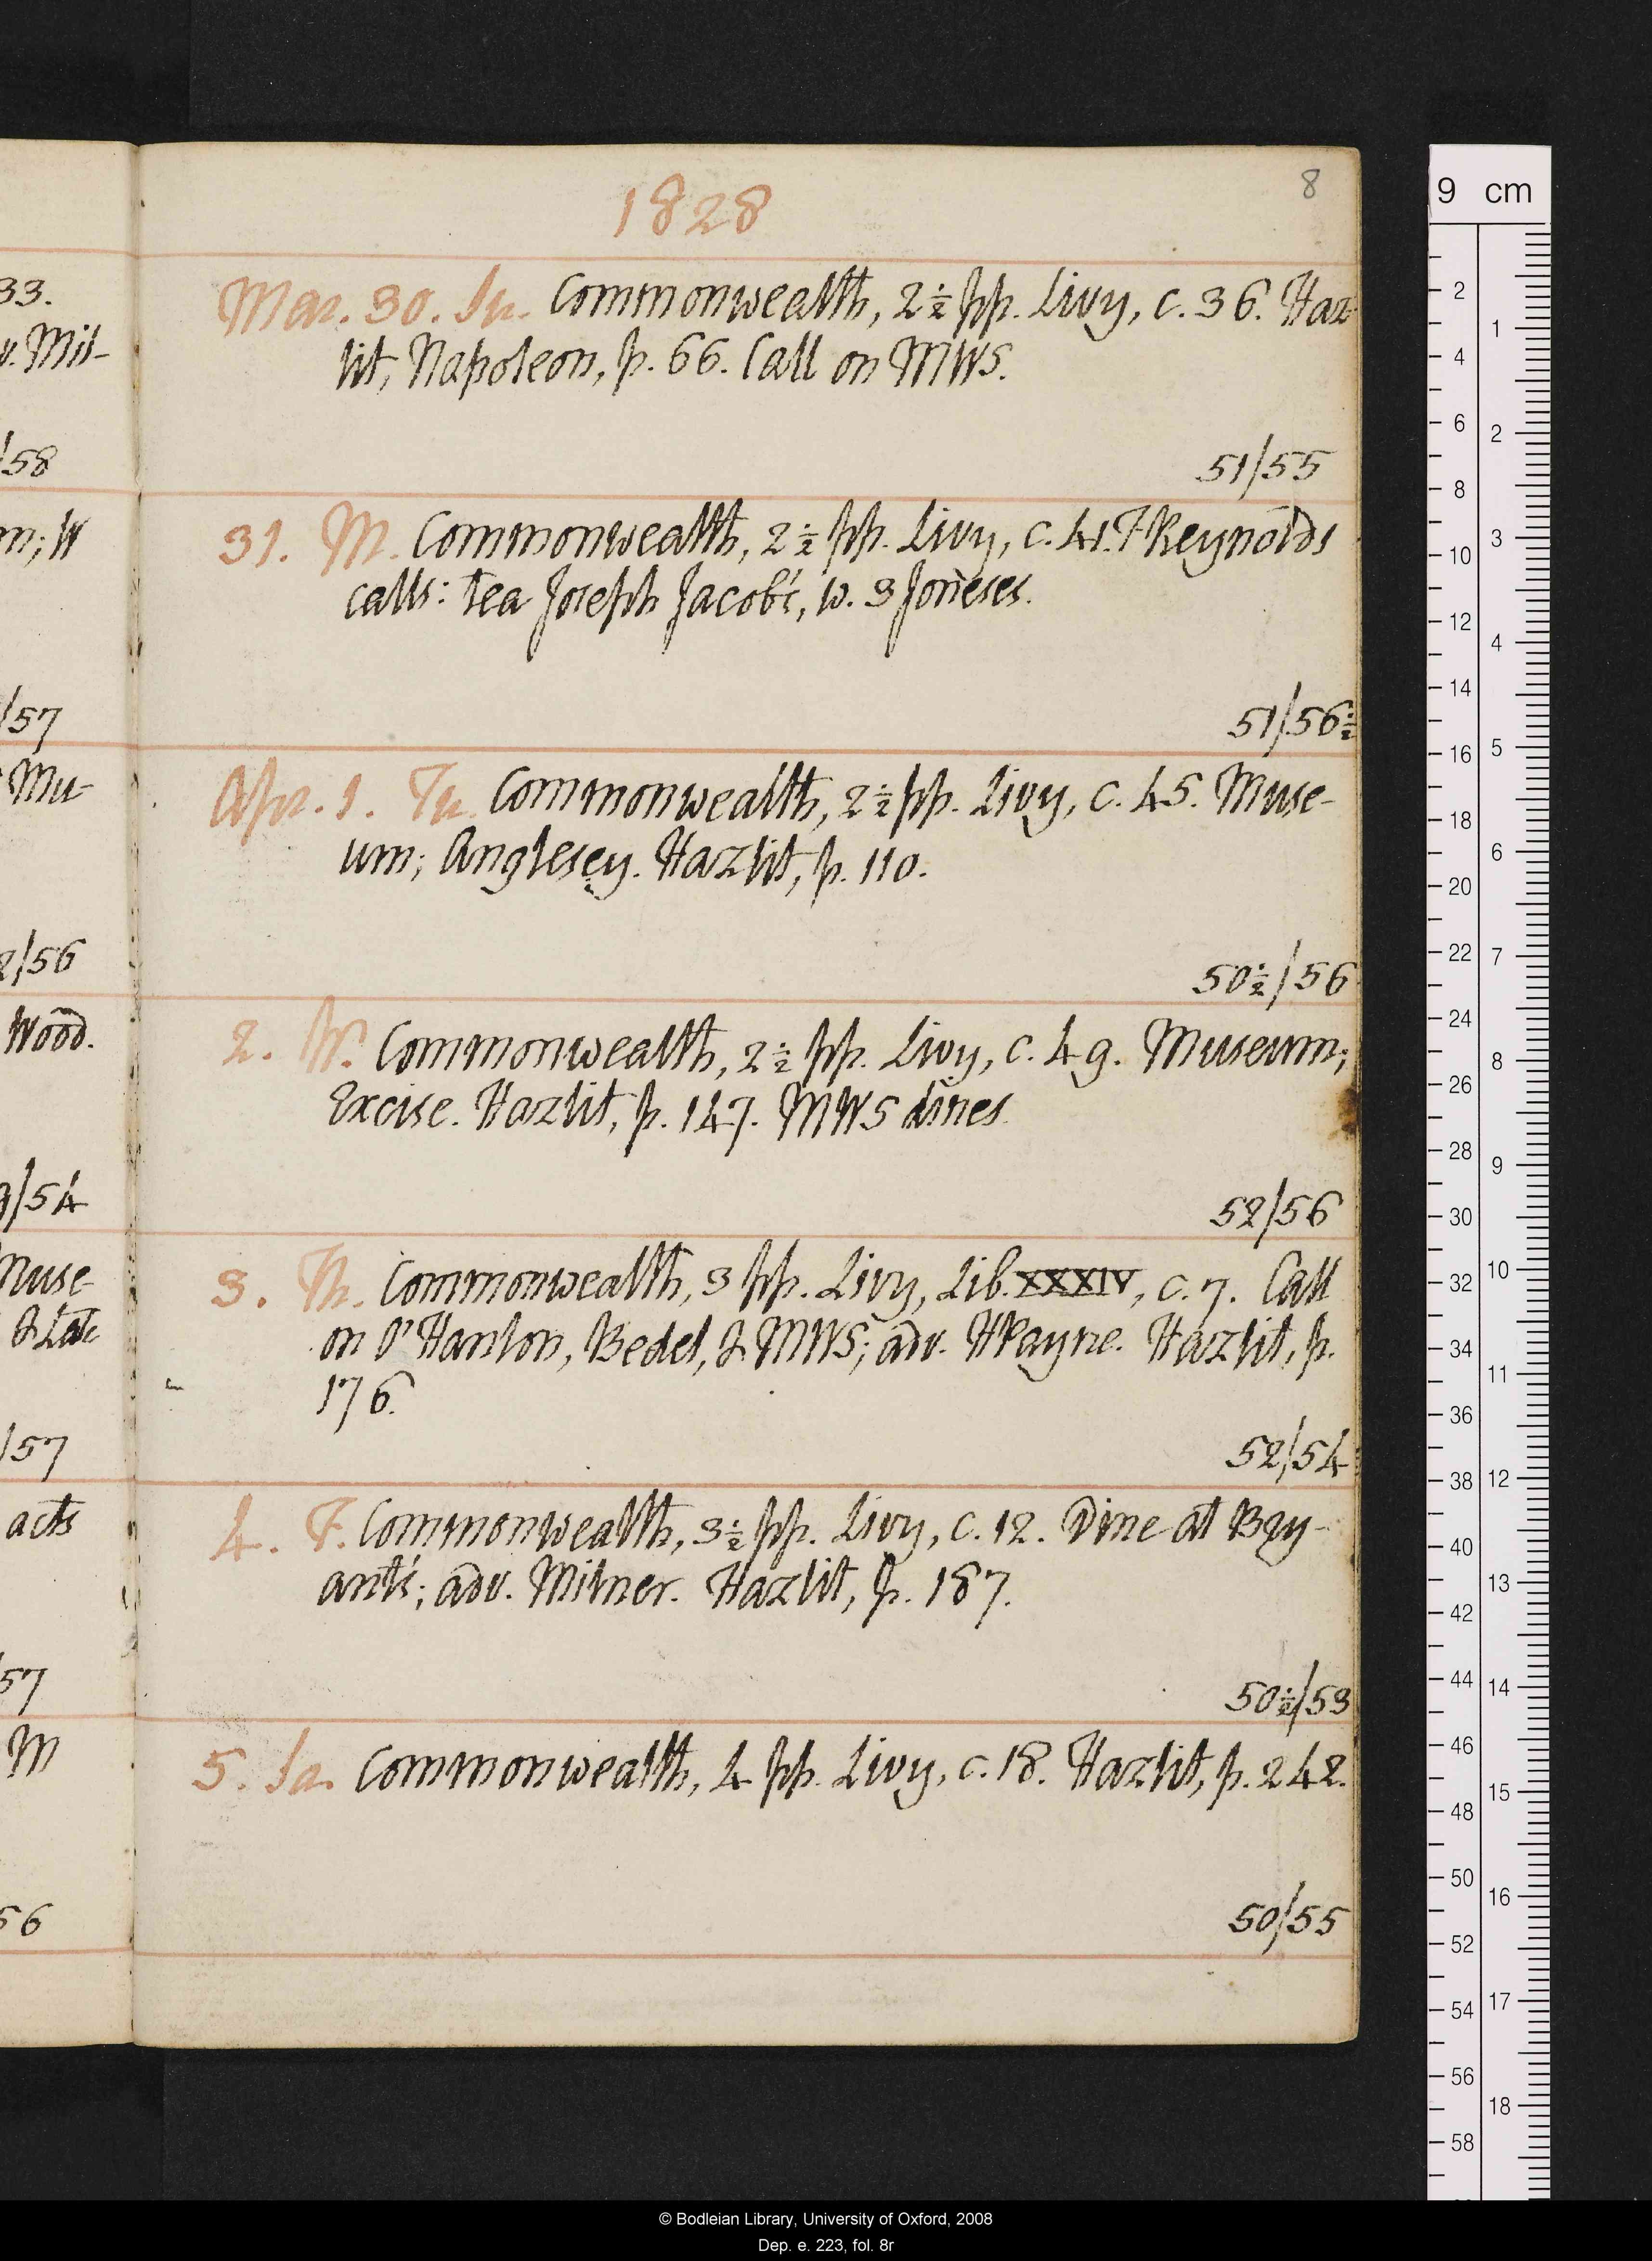 8
1828
33.
v. Mil-
/58
m; W
/57
Mu-
2/56
Wood.
9/54
Muse-
& Late
/57
acts
57
M
56
Mar. 30. Su. Commonwealth, 2½ pp. Livy, c. 36. Haz-
lit, Napoleon, p. 66. Call on MWS.
51/55
31. M. Commonwealth, 2½ pp. Livy, c. 41. FReynolds
calls: tea Joseph Jacob's, w. 3 Joneses.
51/56½
Apr. 1. Tu. Commonwealth, 2½ pp. Livy, c. 45. Muse-
um; Anglesey. Hazlit, p. 110.
50½/56
2. W. Commonwealth, 2½ pp. Livy, c. 49. Museum;
Excise. Hazlit, p. 147. MWS dines.
52/56
3. Th. Commonwealth, 3 pp. Livy, Lib. XXXIV, c. 7. Call
on O'Hanlon, Bedel, & MWS; adv. HPayne. Hazlit, p.
176.
52/54
4. F. Commonwealth, 3½ pp. Livy, c. 12. Dine at Bry-
ant's; adv. Milner. Hazlit, p. 187.
50½/53
5. Sa. Commonwealth, 4 pp. Livy, c. 18. Hazlit, p. 242.
50/55
9 cm
2
4
6
8
10
12
14
16
18
20
22
24
26
28
30
32
34
36
38
40
42
44
46
48
50
52
54
56
58
1
2
3
4
5
6
7
8
9
10
11
12
13
14
15
16
17
18
© Bodleian Library, University of Oxford, 2008
Dep. e. 223, fol. 8r